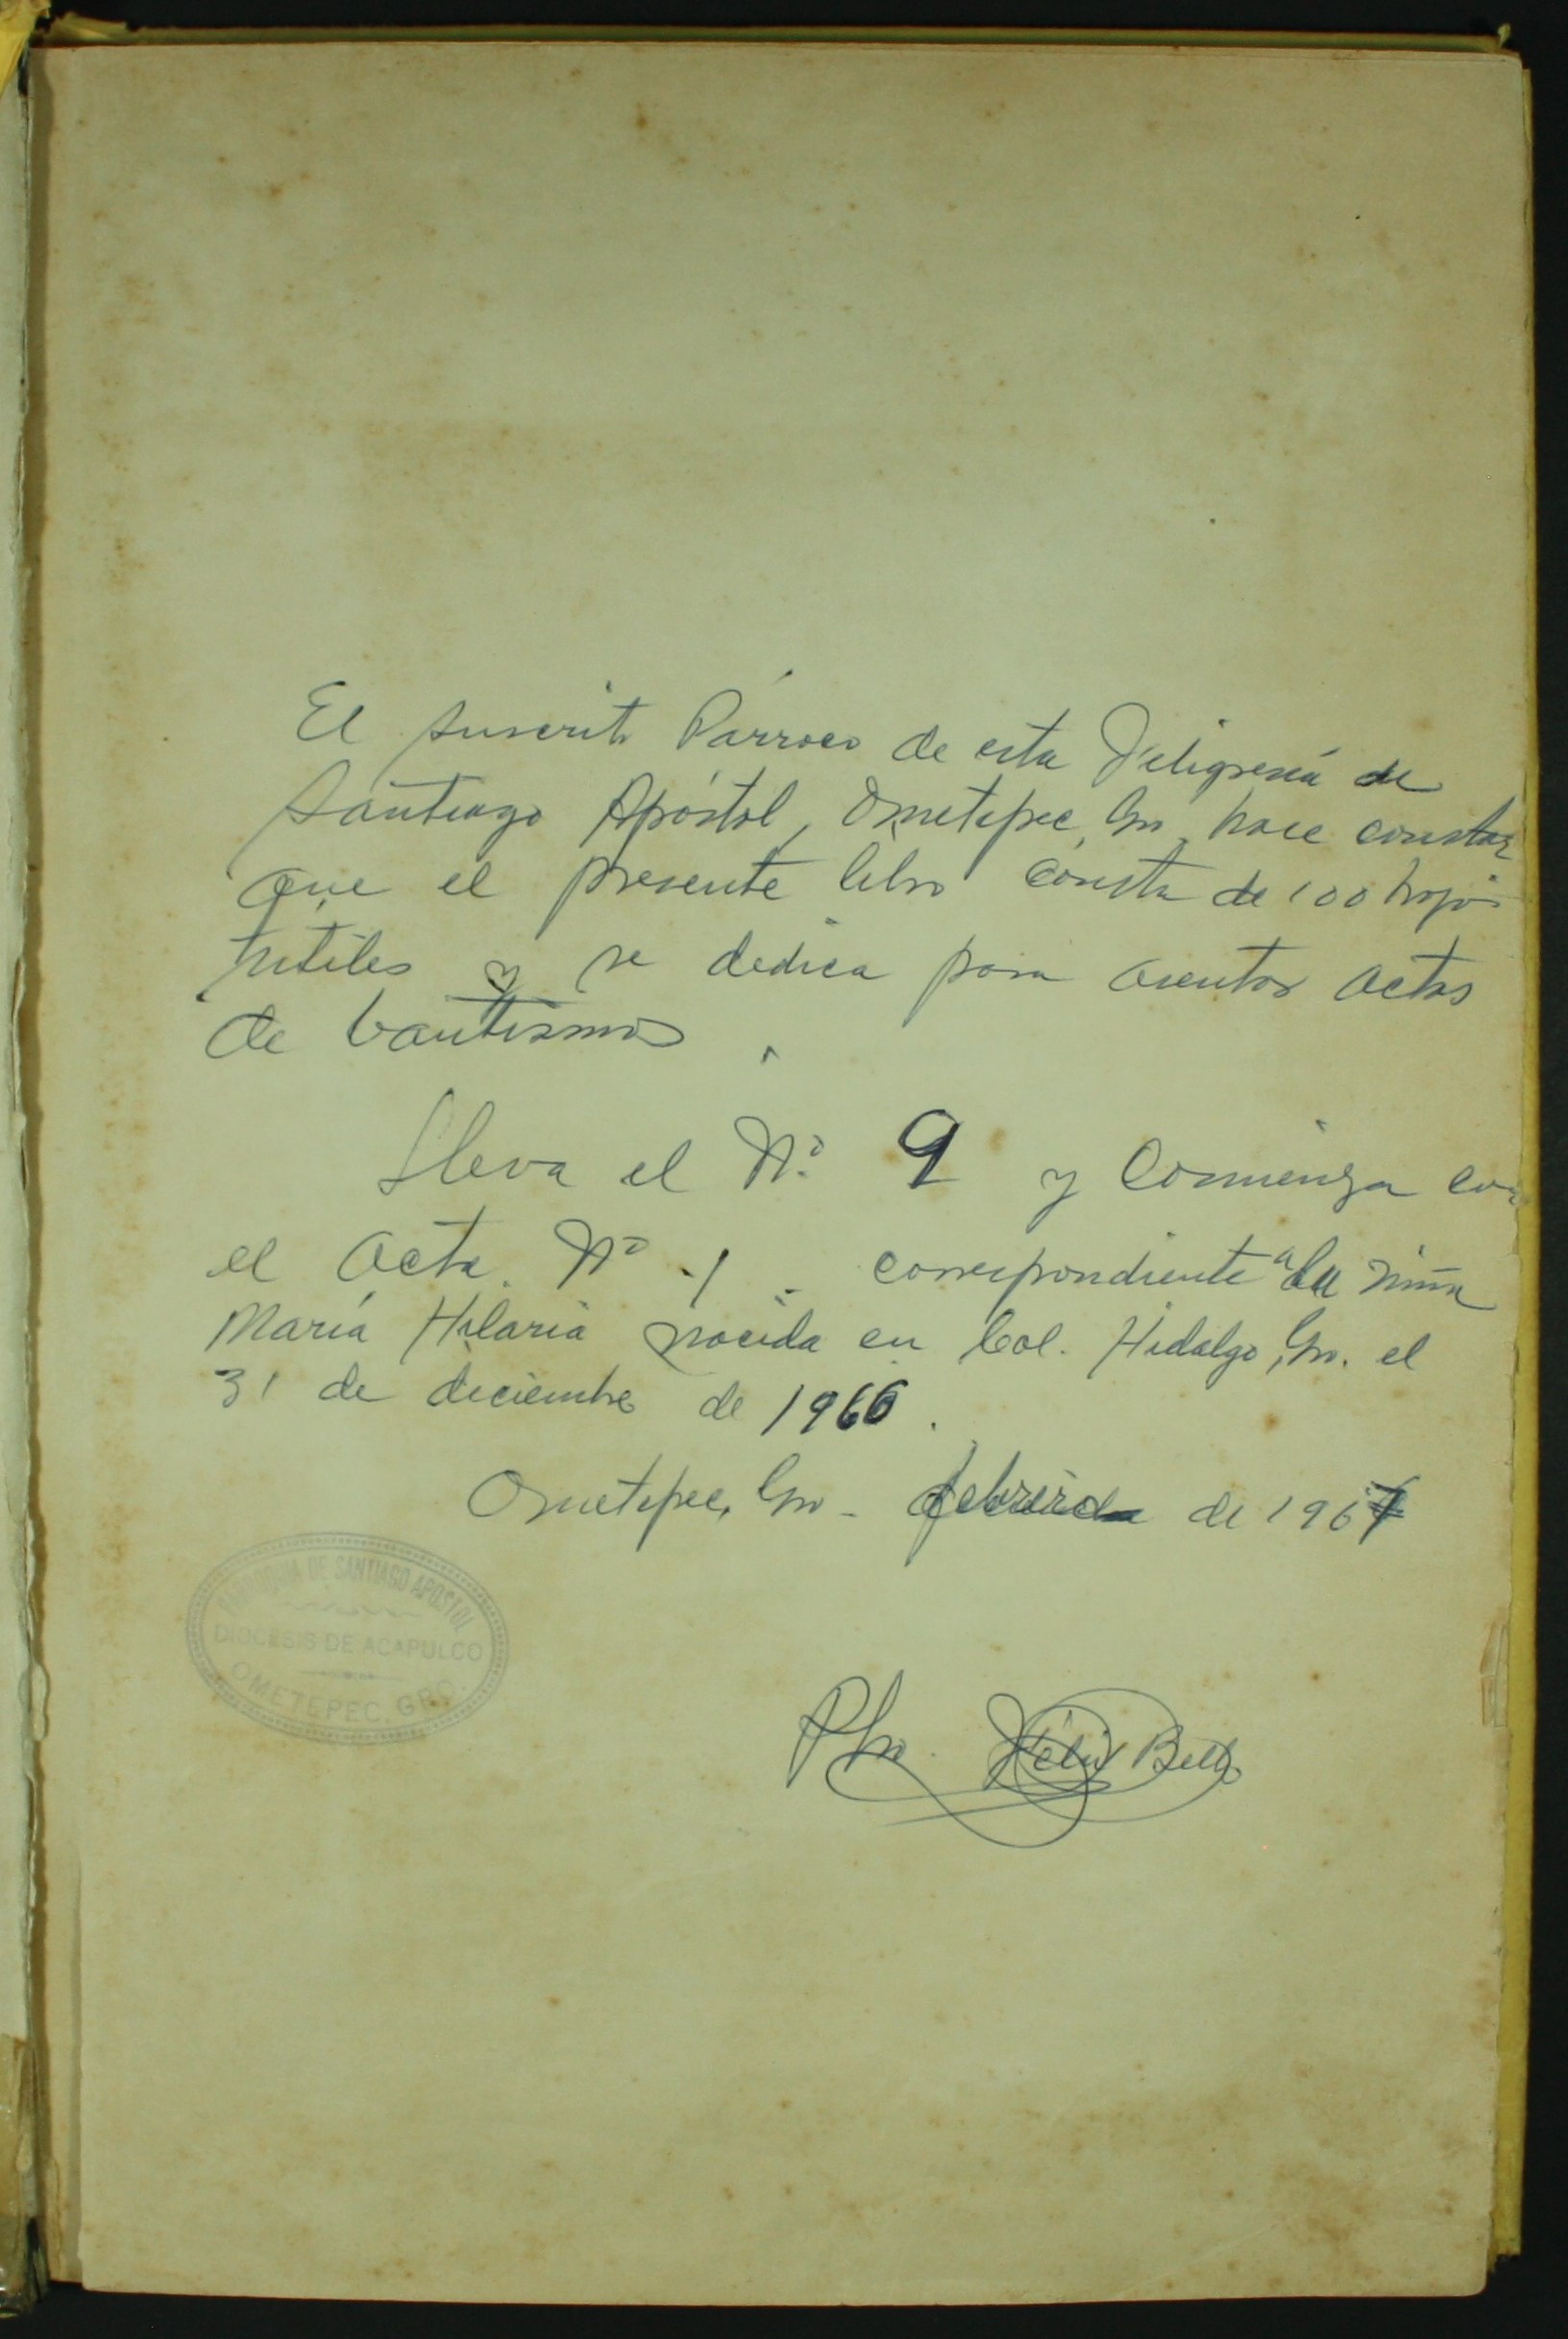 El suscrito Párroco de esta Feligresía de
Santiago Apóstol, Ometepec, Gro. hace constar
que el presente libro consta de 100 hojas
utiles y se dedica para asentar actas
de bautismos.
Lleva el N.º 9 y Comienza con
el acta N.º 1 - correspondiente a la niña
María Hilaria nacida en Col. Hidalgo, Gro. el
31 de diciembre de 1966.
Ometepec, Gro - febrero de 1967
PARROQUIA DE SANTIAGO APOSTOL
DIOCESIS DE ACAPULCO
OMETEPEC, GRO.
Pbro. Félix Bello